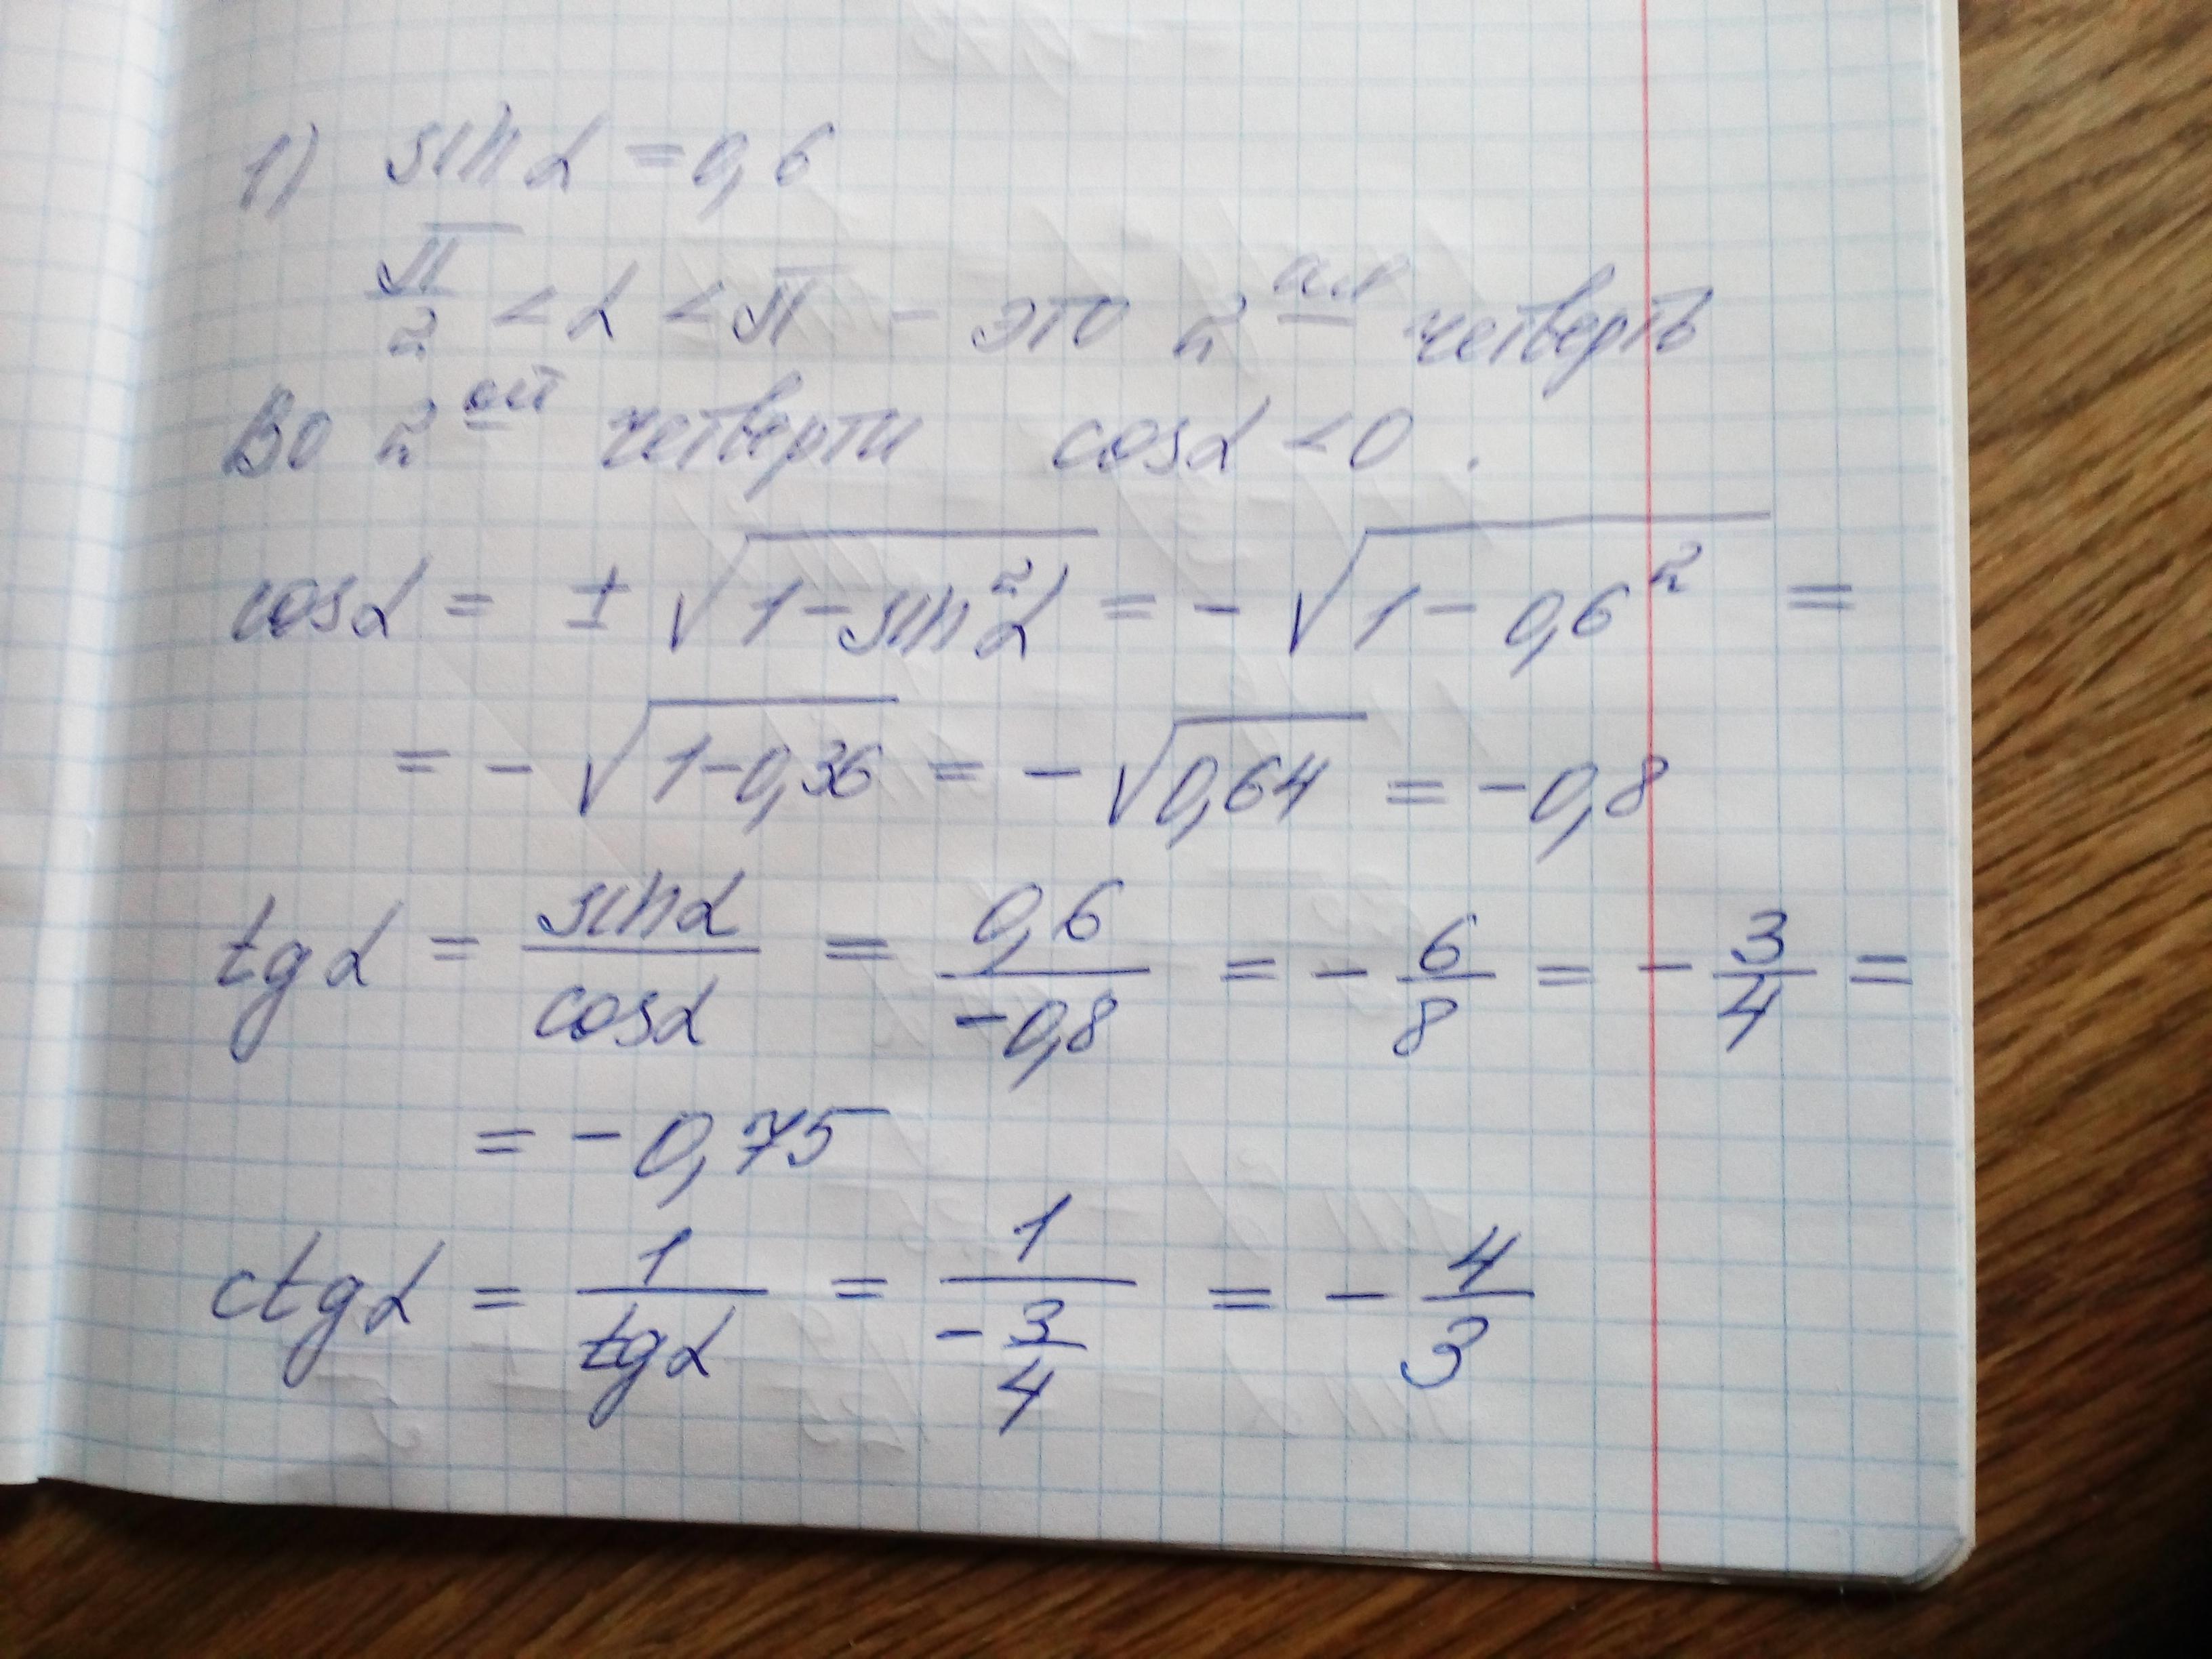 1) sin α = 0,6
π/2 < α < π - это 2ая четверть
Во 2ой четверти cosα < 0.
cosα = ± √(1 - sin²α) = - √(1 - 0,6²) =
= - √(1-0,36) = - √0,64 = -0,8
tg α = sinα/cosα = 0,6/-0,8 = - 6/8 = - 3/4 =
= - 0,75
ctg α = 1/tg α = 1/(- 3/4) = - 4/3